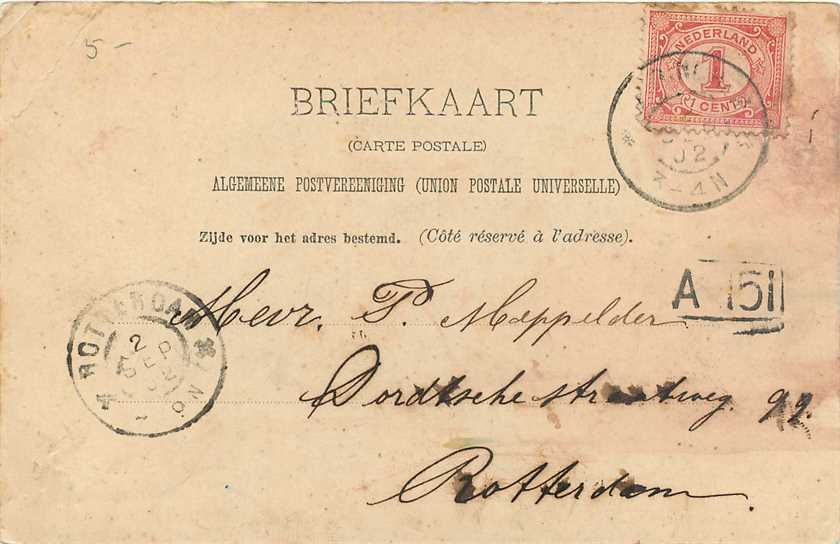 5-
NEDERLAND
1
1 CENT
BRIEFKAART
(CARTE POSTALE)
ALGEMEENE POSTVEREENIGING (UNION POSTALE UNIVERSELLE)
02
3-4N
Zijde voor het adres bestemd. (Côté réservé à l'adresse).
A 151
Mevr. P. Meppelder
Dordtsche straatweg 99.
Rotterdam
ROTTERDAM
2
SEP